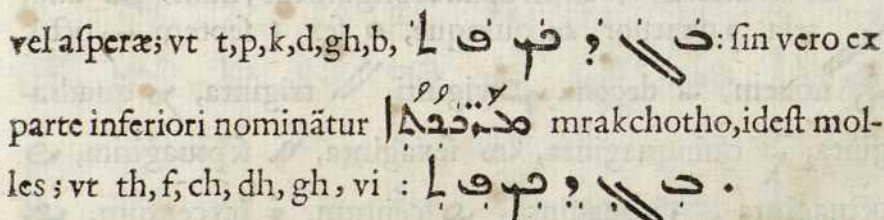 vel aſperæ; vt t,p,k,d,gh,b, ܒ݁ ܓ݁ ܕ݁ ܟ݁ ܦ݁ ܬ݁: ſin vero ex
parte inferiori nominãtur ܡܪ̈ܰܟ݁ܟ݂ܳܬ݂ܳܐ mrakchotho,ideſt mol-
les; vt th, f, ch, dh, gh, vi : ܒ݂ ܓ݂ ܕ݂ ܟ݂ ܦ݂ ܬ݂ .